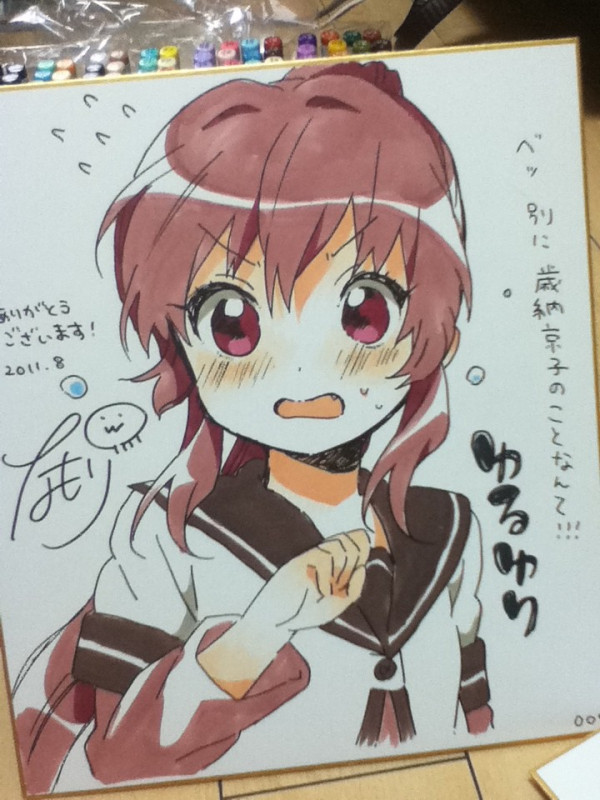 ベッ 別に 歳納京子のことなんて!!!
ゆるゆり
ありがとう
ございます!
2011.8
なもり